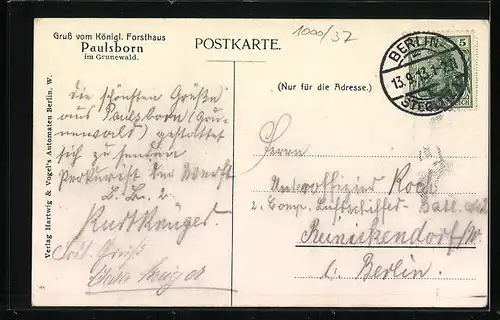 Gruß vom Königl. Forsthaus
Paulsborn
im Grunewald.
POSTKARTE.
1000/32
BERLIN
13.9.13.
STEGLITZ
5
(Nur für die Adresse.)
Verlag Hartwig & Vogel's Automaten Berlin, W.
die schönsten Grüße
aus Paulsborn (Gru-
newald) gestattet
sich zu senden
Prokurist der Werft
Kurt Krüger
Herrn
Unteroffizier Koch
2. Comp. Luftschiffer-Batl.
Reinickendorf/W.
b. Berlin.